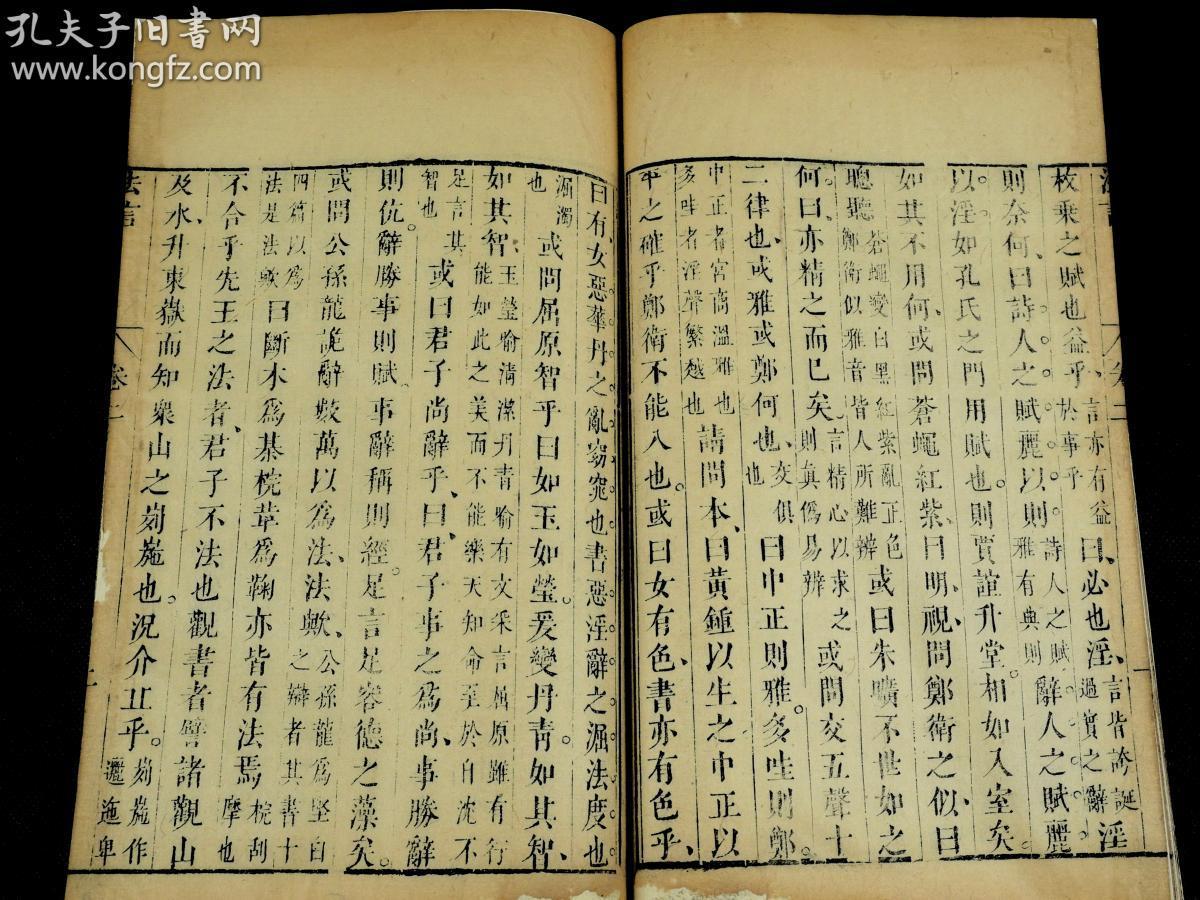 孔夫子旧书网
www.kongfz.com
法言
卷二
枚乗之賦也益乎、言亦有益於事乎曰、必也淫、言皆誇誕過實之辭淫
則奈何、曰詩人之賦麗以則、詩人之賦雅有典則辭人之賦麗
以淫如孔氏之門用賦也。則賈誼升堂。相如入室矣。
如其不用何、或問蒼蠅紅紫、曰明、視問鄭衛之似、曰
聰聽蒼蠅變白黑紅紫亂正色鄭衛似雅音皆人所難辨或曰朱曠不世如之
何。曰、亦精之而巳矣。言精心以求之則眞僞易辨或問交五聲十
二律也、或雅或鄭何也、交俱也曰中正則雅。多哇則鄭。
中正者宮商溫雅也多哇者淫聲繁越也請問本、曰黃鍾以生之中正以
平之確乎鄭衛不能入也。或曰女有色、書亦有色乎、
曰有、女惡華丹之亂窈窕也書惡淫辭之淈法度也
淈濁也或問屈原智乎曰如玉如瑩。爰變丹青。如其智、
如其智、玉瑩喻清潔丹青喻有文采言屈原雖有行能如此之美而不能樂天知命至於自沈不
足言其智也或曰君子尚辭乎、曰、君子事之爲尚、事勝辭
則伉。辭勝事則賦。事辭稱則經。足言足容德之藻矣。
或問公孫龍詭辭數萬以爲法、法歟、公孫龍爲堅白之辯者其書十
四篇以爲法是法歟曰斷木爲棊梡革爲鞠亦皆有法焉梡刮摩也
不合乎先王之法者、君子不法也觀書者譬諸觀山
及水、升東嶽而知衆山之峛崺也。況介丘乎。峛崺作邐迤卑
法言
卷二